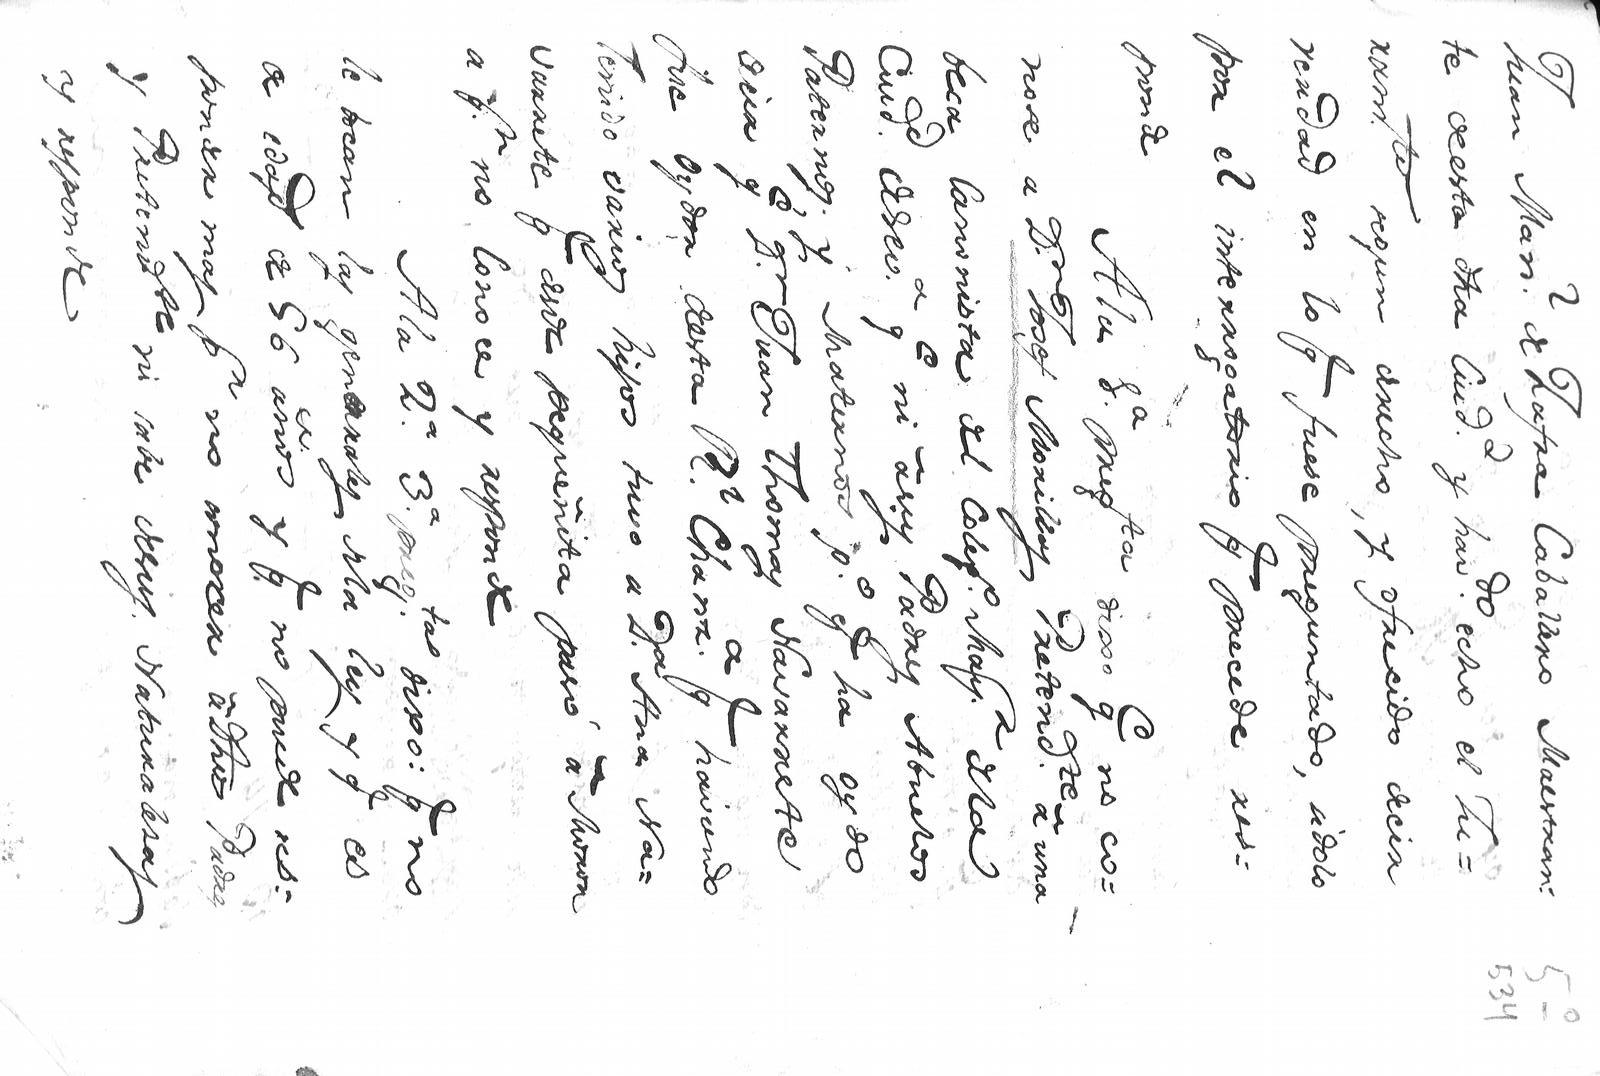 Juan Man.l de Zafra Caballero Maestran:
te de esta dha Ciud.d y hav.do echo el Ju=
ram.to segun derecho, y ofrecido decir
verdad en lo q fuese preguntado, siedolo
por el interrogatorio q precede res=
ponde
A la 1.a preg.ta dixo q no co=
noze a D.n Josef Morillas Pretend.te a una
beca Canonista del Coleg.o May.r de la
Ciud.d de q ni a sus Padres Abuelos
Paternos, y Maternos p.o q ha oydo
decia q D.n Juan Thomas Navarrete
fue oydor de esta R.l Chanz.a q haviendo
tenido varios hijos tuvo a D.a Ana Na=
varrete q desde pequeñita pasó a Moron
a q.n no Conoce y responde
A la 2.a 3.a preg.tas dixo: q no
le tocan las generales de la ley y q es
de edad de 56 años y q no puede res=
ponder mas p.r no conocer a dho Padres
y Pretend.te ni sabe de sus Naturalesas
y responde
5.o
534